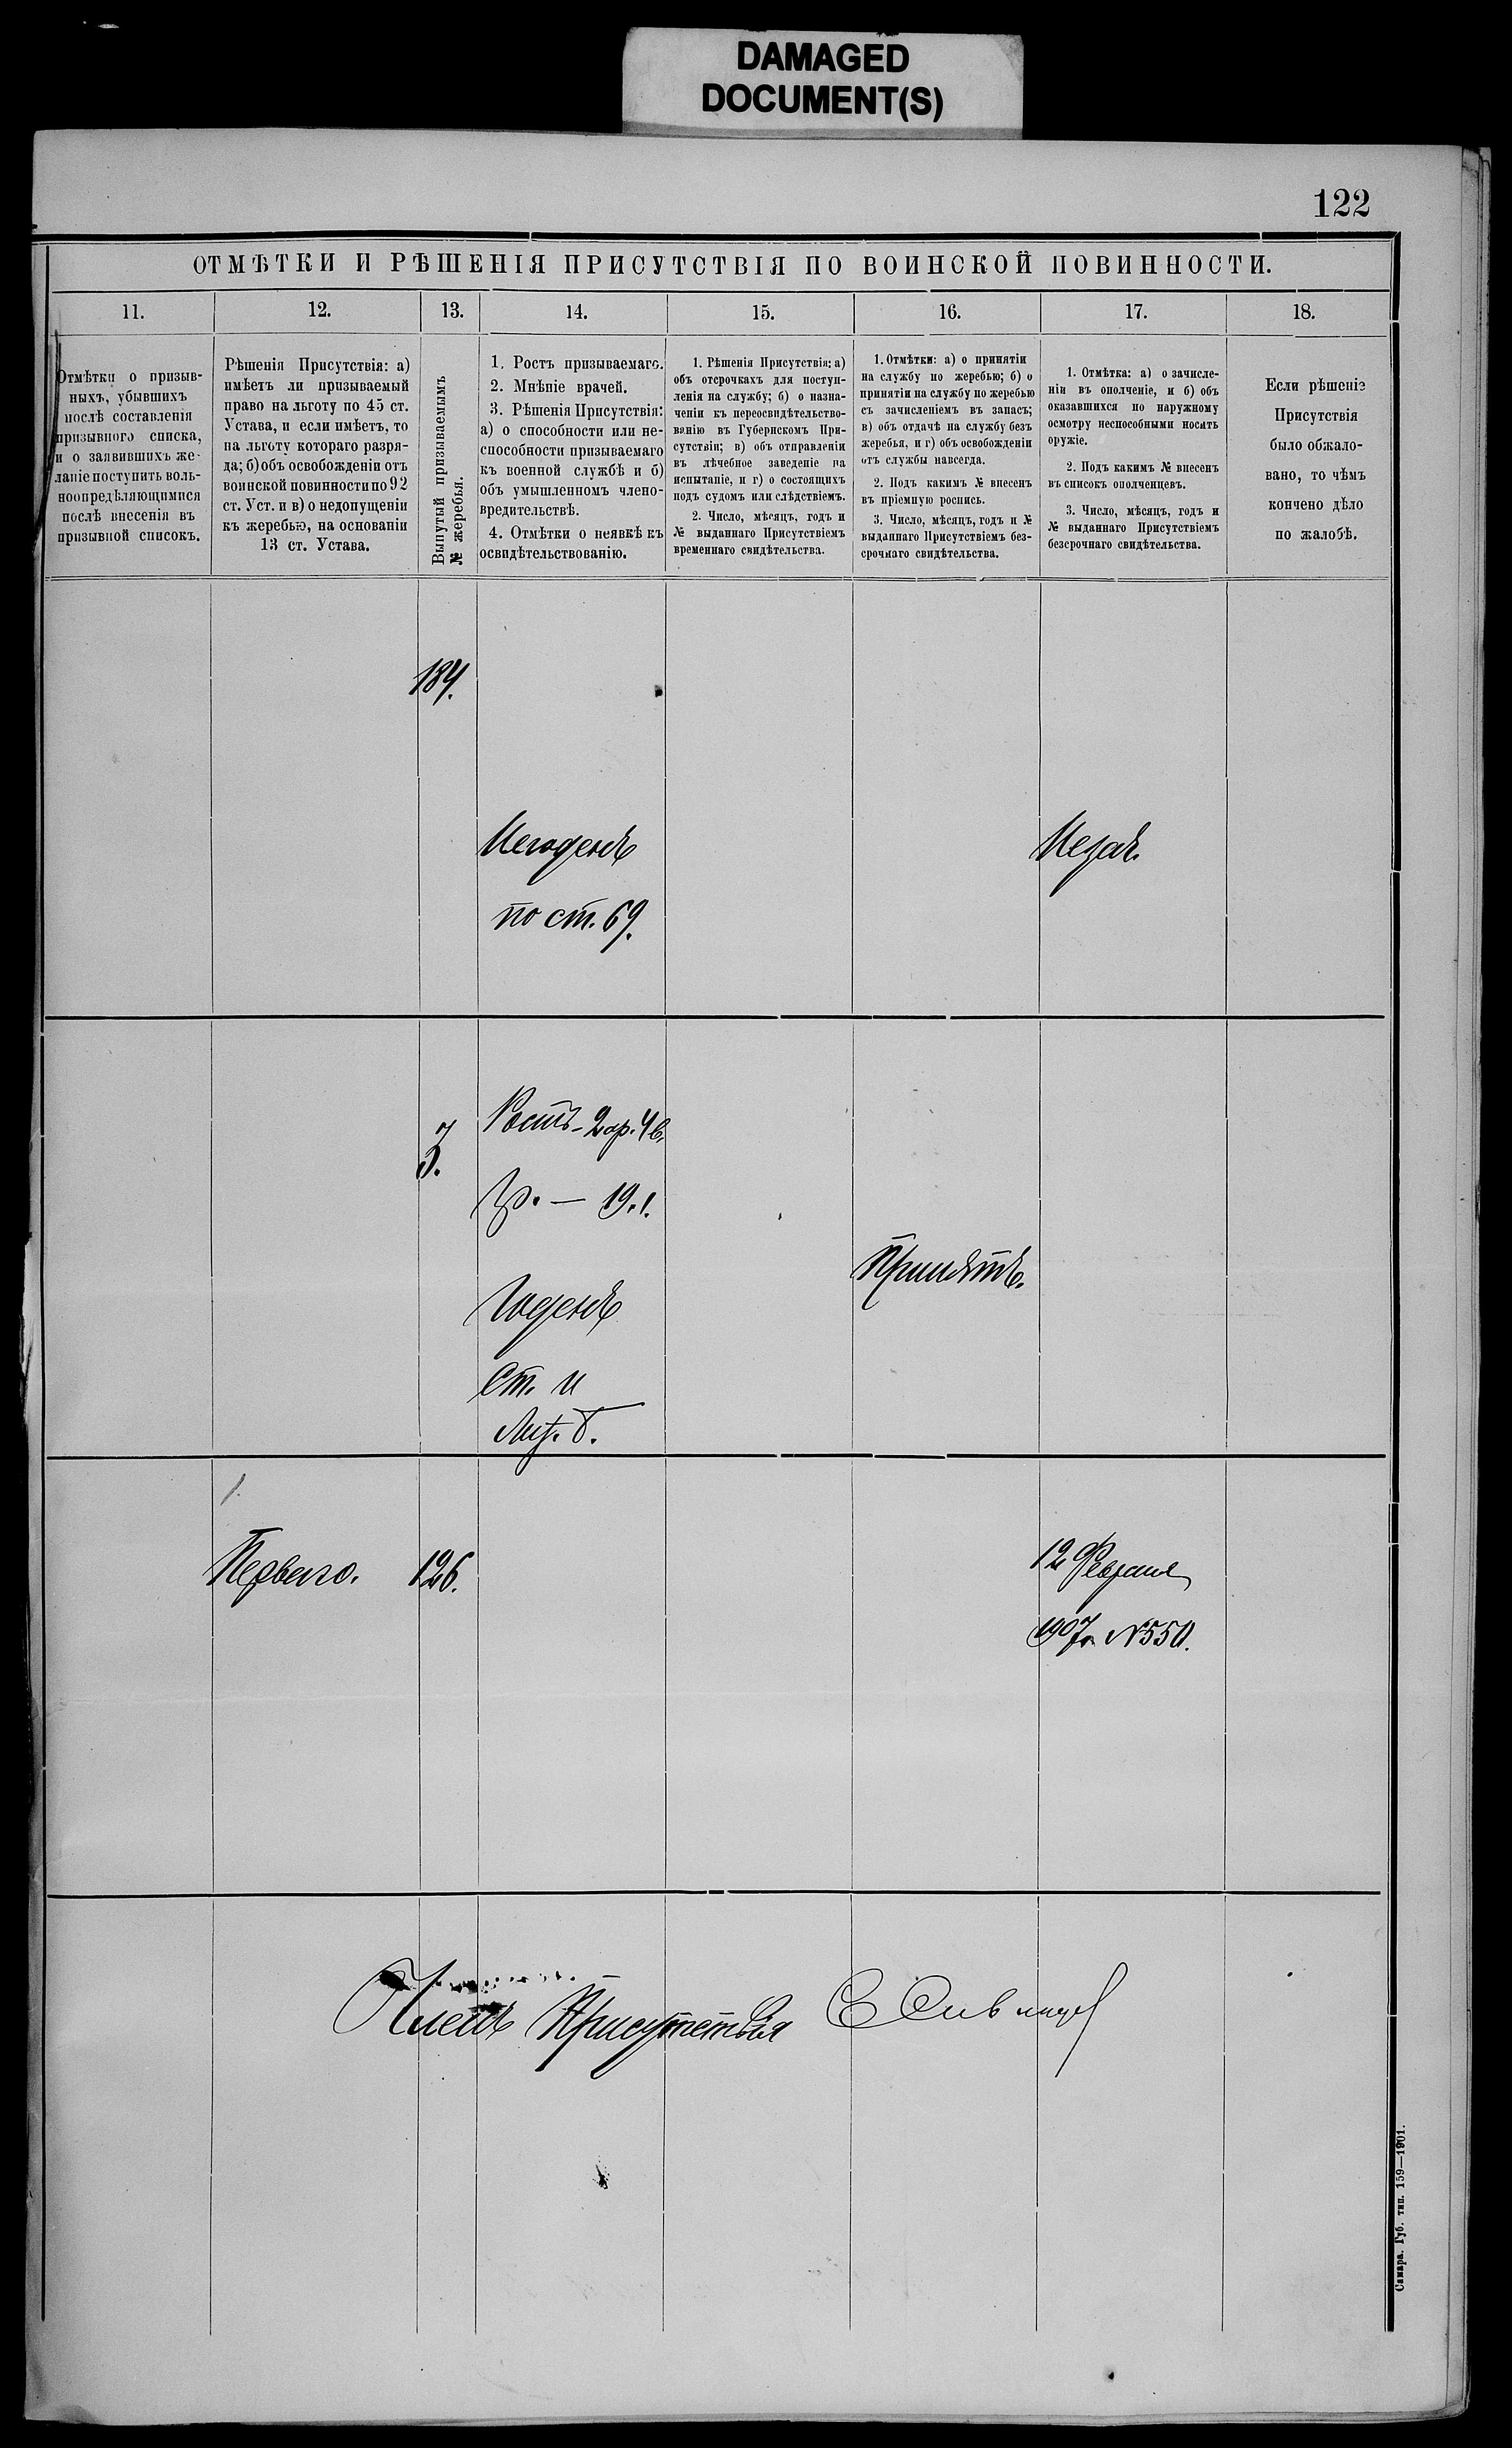 DAMAGED
DOCUMENT(S)
122
ОТМѢТКИ И РѢШЕНІЯ ПРИСУТСТВІЯ ПО ВОИНСКОЙ ПОВИННОСТИ.
11.
12.
13.
14.
15.
16.
17.
18.
Отмѣтки о призыв-
ныхъ, убывшихъ
послѣ составленія
призывного списка,
и о заявившихъ же-
ланіе поступить воль-
ноопредѣляющимися
послѣ внесенія въ
призывной списокъ.
Рѣшенія Присутствія: а)
имѣетъ ли призываемый
право на льготу по 45 ст.
Устава, и если имѣетъ, то
на льготу котораго разря-
да; б) объ освобожденіи отъ
воинской повинности по 92
ст. Уст. и в) о недопущеніи
къ жеребью, на основаніи
13 ст. Устава.
Вынутый призываемымъ
№ жеребья.
1. Ростъ призываемаго.
2. Мнѣніе врачей.
3. Рѣшенія Присутствія:
а) о способности или не-
способности призываемаго
къ военной службѣ и б)
объ умышленномъ члено-
вредительствѣ.
4. Отмѣтки о неявкѣ къ
освидѣтельствованію.
1. Рѣшенія Присутствія: а)
объ отсрочкахъ для поступ-
ленія на службу; б) о назна-
ченіи къ переосвидѣтельство-
ванію въ Губернскомъ При-
сутствіи; в) объ отправленіи
въ лѣчебное заведеніе на
испытаніе, и г) о состоящихъ
подъ судомъ или слѣдствіемъ.
2. Число, мѣсяцъ, годъ и
№ выданнаго Присутствіемъ
временнаго свидѣтельства.
1. Отмѣтки: а) о принятіи
на службу по жеребью; б) о
принятіи на службу по жеребью
съ зачисленіемъ въ запасъ;
в) объ отдачѣ на службу безъ
жеребья, и г) объ освобожденіи
отъ службы навсегда.
2. Подъ какимъ № внесенъ
въ пріемную роспись.
3. Число, мѣсяцъ, годъ и №
выданнаго Присутствіемъ без-
срочнаго свидѣтельства.
1. Отмѣтка: а) о зачисле-
ніи въ ополченіе, и б) объ
оказавшихся по наружному
осмотру неспособными носить
оружіе.
2. Подъ какимъ № внесенъ
въ списокъ ополченцевъ.
3. Число, мѣсяцъ, годъ и
№ выданнаго Присутствіемъ
безсрочнаго свидѣтельства.
Если рѣшеніе
Присутствія
было обжало-
вано, то чѣмъ
кончено дѣло
по жалобѣ.
184.
Негоденъ
по ст. 69.
Незач.
5.
Ростъ - 2 ар. 4 в.
Гр. — 19.1.
Годенъ
Ст. и
Лит. Б.
Принятъ.
1.
Перваго.
126.
12 Февраля
1907 г. № 550.
Членъ Присутствія
Самара. Губ. тип. 159—1901.